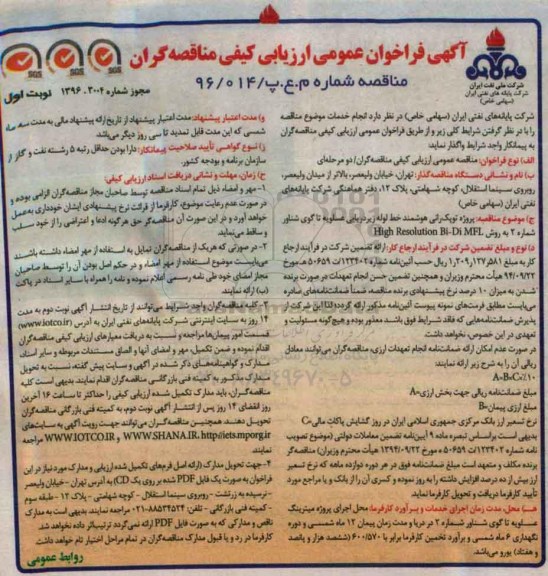 آگهی فراخوان عمومی ارزیابی کیفی مناقصه گران
مناقصه شماره م.ع.پ/۹۶/۰۱۴
مجوز شماره ۳۰۰۴. ۱۳۹۶
نوبت اول
شرکت ملی نفت ایران
شرکت پایانه های نفتی ایران
(سهامی خاص)
SGS
SGS
SGS
شرکت پایانه‌های نفتی ایران (سهامی خاص) در نظر دارد انجام خدمات موضوع مناقصه
را با در نظر گرفتن شرایط کلی زیر و از طریق فراخوان عمومی ارزیابی کیفی مناقصه‌گران
به پیمانکار واجد شرایط واگذار نماید.
الف) نوع فراخوان: مناقصه عمومی ارزیابی کیفی مناقصه‌گران/ دو مرحله‌ای
ب) نام و نشانی دستگاه مناقصه‌گذار: تهران، خیابان ولیعصر، بالاتر از میدان ولیعصر،
روبروی سینما استقلال، کوچه شهامتی، پلاک ۱۲، دفتر هماهنگی شرکت پایانه‌های
نفتی ایران (سهامی خاص)
ج) موضوع مناقصه: پروژه توپک‌رانی هوشمند خط لوله زیردریایی عسلویه تا گوی شناور
شماره ۲ به روش High Resolution Bi-Di MFL
د) نوع و مبلغ تضمین شرکت در فرآیند ارجاع کار: ارائه تضمین شرکت در فرآیند ارجاع
کار به مبلغ ۱٫۲۰۹٫۱۲۷٫۵۸۱ ریال حسب آئین‌نامه شماره ۱۲۳۴۰۲/ت ۵۰۶۵۹هـ مورخ
۹۴/۰۹/۲۲ هیأت محترم وزیران و همچنین تضمین حسن انجام تعهدات در صورت برنده
شدن به میزان ۱۰ درصد نرخ پیشنهادی برنده مناقصه. ضمناً ضمانت‌نامه‌های صادره
می‌بایست مطابق فرمت‌های نمونه پیوست آئین‌نامه مذکور ارائه گردد؛ لذا این شرکت از
پذیرش ضمانت‌نامه‌هایی که فاقد شرایط فوق باشد معذور بوده و هیچ‌گونه مسئولیت و
تعهدی در این خصوص، نخواهد داشت
در صورت عدم امکان ارائه ضمانت‌نامه انجام تعهدات ارزی، مناقصه‌گران می‌توانند معادل
ریالی آن را به شرح زیر ارائه نمایند:
A=B×C×٪۱۰
مبلغ ضمانت‌نامه ریالی جهت بخش ارزی=A
مبلغ ارزی پیمان=B
نرخ تسعیر ارز بانک مرکزی جمهوری اسلامی ایران در روز گشایش پاکات مالی=C
بدیهی است براساس تبصره ماده ۹ آیین‌نامه تضمین معاملات دولتی (موضوع تصویب
نامه شماره ۱۲۳۴۰۲/ت ۵۰۶۵۹ه مورخ ۱۳۹۴/۰۹/۲۲ هیأت محترم وزیران) مناقصه‌گر
برنده مکلف و متعهد است مبلغ ضمانت‌نامه فوق در هر دوره دوازده ماهه که نرخ تسعیر
ارز بیش از ده درصد افزایش داشته را به روز نموده و کسری آن را از بانک و یا مراجع مورد
تأیید کارفرما دریافت و تحویل کارفرما نماید
هـ) محل، مدت زمان اجرای خدمات و برآورد کارفرما: محل اجرای پروژه میترینگ
عسلویه تا گوی شناور شماره ۲ در دریا و مدت زمان پیمان ۱۲ ماه شمسی و دوره
نگهداری ۶ ماه شمسی و برآورد تخمین کارفرما برابر با ۶۰۰/۵۷۰ (ششصد هزار و پانصد
و هفتاد) یورو می‌باشد.
و) مدت اعتبار پیشنهاد: مدت اعتبار پیشنهاد از تاریخ ارائه پیشنهاد مالی به مدت سه ماه
شمسی که این مدت قابل تمدید تا سی روز دیگر می‌باشد.
ز) نوع گواهی تأیید صلاحیت پیمانکار: دارا بودن حداقل رتبه ۵ رشته نفت و گاز از
سازمان برنامه و بودجه کشور.
ح) زمان، مهلت و نشانی دریافت اسناد ارزیابی کیفی:
۱- مهر و امضاء ذیل تمام اسناد مناقصه توسط صاحبان مجاز مناقصه‌گران الزامی بوده و
در صورت عدم رعایت موضوع، کارفرما از قرائت نرخ پیشنهادی ایشان خودداری به عمل
خواهد آورد و در این صورت آن مناقصه‌گر حق هرگونه ادعا و اعتراضی را از خود سلب
و ساقط می‌نماید.
۲- در صورتی که هریک از مناقصه‌گران تمایل به استفاده از مهر امضاء داشته باشند
می‌بایست موضوع استفاده از مهر امضاء و در حکم اصل بودن آن را توسط صاحبان
مجاز امضای خود طی نامه رسمی اعلام نموده و نامه را همراه با سایر اسناد در پاکت
(ب) ارائه نمایند.
۳- کلیه مناقصه‌گران واجد شرایط می‌توانند از تاریخ انتشار آگهی نوبت دوم به مدت
۱۴ روز به سایت اینترنتی شرکت پایانه‌های نفتی ایران به آدرس (www.iotco.ir)
قسمت امور پیمان‌ها مراجعه و نسبت به دریافت معیارهای ارزیابی کیفی مناقصه‌گران
اقدام نموده و ضمن تکمیل، مهر و امضای آنها و الصاق مستندات مربوطه و سایر اسناد،
مدارک و گواهینامه‌های ذکر شده در آگهی و سایت پیش گفته، نسبت به تحویل
مدارک مذکور به کمیته فنی بازرگانی مناقصه‌گران اقدام نمایند. بدیهی است کلیه
مناقصه‌گران، باید مدارک تکمیل شده ارزیابی کیفی را حداکثر تا ساعت ۱۶ آخرین
روز انقضای ۱۴ روز پس از انتشار آگهی نوبت دوم به کمیته فنی بازرگانی مناقصه‌گران
تحویل دهند. همچنین مناقصه‌گران می‌توانند جهت رویت آگهی به سایت‌های
WWW.IOTCO.IR و WWW.SHANA.IR، http://iets.mporg.ir مراجعه
نمایند
۴- جهت تحویل مدارک (ارائه اصل فرم‌های تکمیل شده ارزیابی و مدارک مورد نیاز در این
فراخوان به صورت یک فایل PDF شده بر روی یک CD) به آدرس تهران - خیابان ولیعصر
- نرسیده به زرتشت - روبروی سینما استقلال - کوچه شهامتی - پلاک ۱۲ - طبقه سوم
- کمیته فنی بازرگانی - تلفن: ۸۸۵۳۴۵۲۴-۰۲۱ مراجعه نمایند. بدیهی است به مدارک
ناقص و مدارکی که به صورت فایل PDF ارائه نمی‌گردد ترتیب‌اثر داده نخواهد شد.
کارفرما در رد و یا قبول مدارک مناقصه‌گران در تمام مراحل اختیار تام خواهد داشت
روابط عمومی